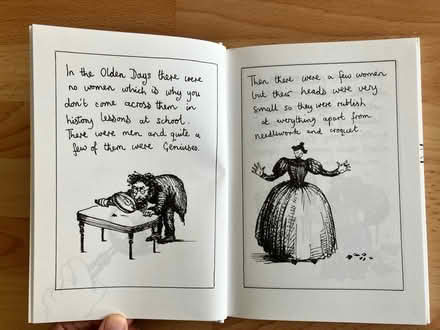 In the Olden Days there were
no women which is why you
don't come across them in
history lessons at school.
There were men and quite a
few of them were Geniuses.
Then there were a few women
but their heads were very
small so they were rubbish
at everything apart from
needlework and croquet.